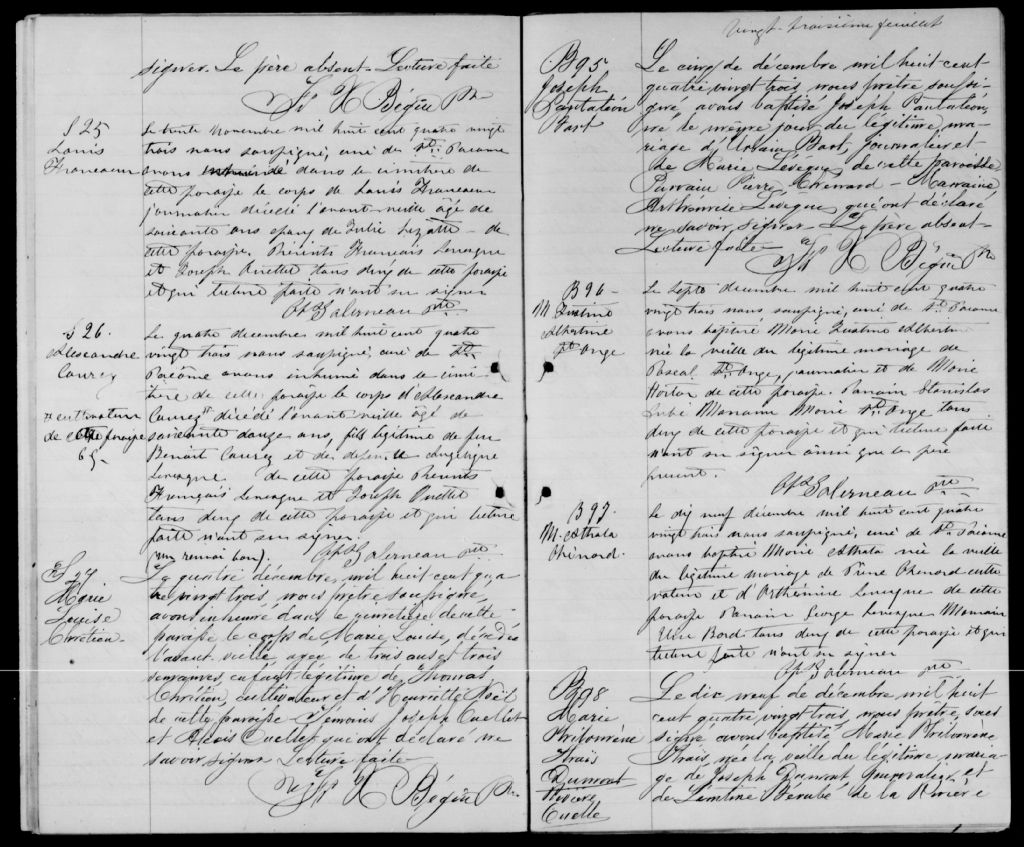 signer. Le père absent. Lecture faite
Bégin Ptre
S 25
Louis
Francoeur
Le trente Novembre mil huit cent quatre vingt
trois nous soussigné, curé de St. Pacôme
avons inhumé dans le cimitière de
cette paroisse le corps de Louis Francoeur
journalier décédé l'avant-veille âgé de
soixante ans epoux de Julie Lizotte - de
cette paroisse. Présents Francois Levesque
et Joseph Ouellet tous deux de cette paroisse
et qui lecture faite n'ont su signer
Galerneau Ptre
S 26.
Alexandre
Le quatre decembre mil huit cent quatre
vingt trois nous soussigné, curé de St.
Pacôme avons inhumé dans le cimi
tière de cette paroisse le corps d'Alexandre
décédé l'avant veille âgé de
# cultivateur
de cette paroisse
soixante douze ans, fils légitime de feu
Benoit et de défunte Angélique
Levesque. de cette paroisse Présents
François Levesque et Joseph Ouellet
tous deux de cette paroisse et qui lecture
faite n'ont su signer.
(un renvoi bon). Galerneau ptre
S 27
Marie
Louise
Chrétien
Le quatre décembre, mil huit cent qua
tre vingt trois, nous prêtre soussigné,
avons inhumé dans le cimetière de cette
paroisse le corps de Marie Louise, décédée
l'avant veille agée de trois ans et trois
semaines, enfant légitime de Thomas
Chrétien, cultivateur et d'Henriette
de cette paroisse. Témoins Joseph Ouellet
et Alexis Ouellet qui ont déclaré ne
savoir signer Lecture faite
Bégin Ptre
Vingt-troisième feuillet
B 95
Joseph
Pantaléon
Le cinq de décembre mil huit cent
quatre vingt trois nous prêtre soussi-
gné, avons baptisé Joseph Pantaléon,
né le même jour du légitime ma-
riage d' journalier et
de Marie Lévêque, de cette paroisse
Parrain Pierre - Marraine
Lévêque qui ont déclaré
ne savoir signer - Le père absent -
Lecture faite
Bégin Ptre
B 96
M. Justine
Albertine
St. Onge
Le Sept decembre mil huit cent quatre
vingt trois nous, soussigné, curé de St. Pacome
avons baptisé Marie Justine Albertine
née la veille du légitime mariage de
Pascal St. Onge, journalier et de Marie
de cette paroisse. Parrain Stanislas
Marraine Marie St. Onge tous
deux de cette paroisse et qui lecture faite
n'ont su signer ainsi que le père
présent.
Galerneau ptre
B 97
M. Athala
Chénard.
Le dix neuf décembre mil huit cent quatre
vingt trois nous soussigné, curé de St. Pacôme
avons baptisé Marie Athala née la veille
du légitime mariage de Pierre Chenard culti
vateur et d'Arthémise Levesque de cette
paroisse Parrain George Levesque Marraine
tous deux de cette paroisse et qui
lecture faite n'ont su signer
Galerneau ptre
B 98
Marie
Philomène
Dumont
Rivière
Ouelle
Le dix neuf de décembre mil huit
cent quatre vingt trois, nous prêtre, sous
signé avons baptisé Marie Philomène
née la veille du légitime maria-
ge de Joseph Dumont et
de Bérubé de la Rivière